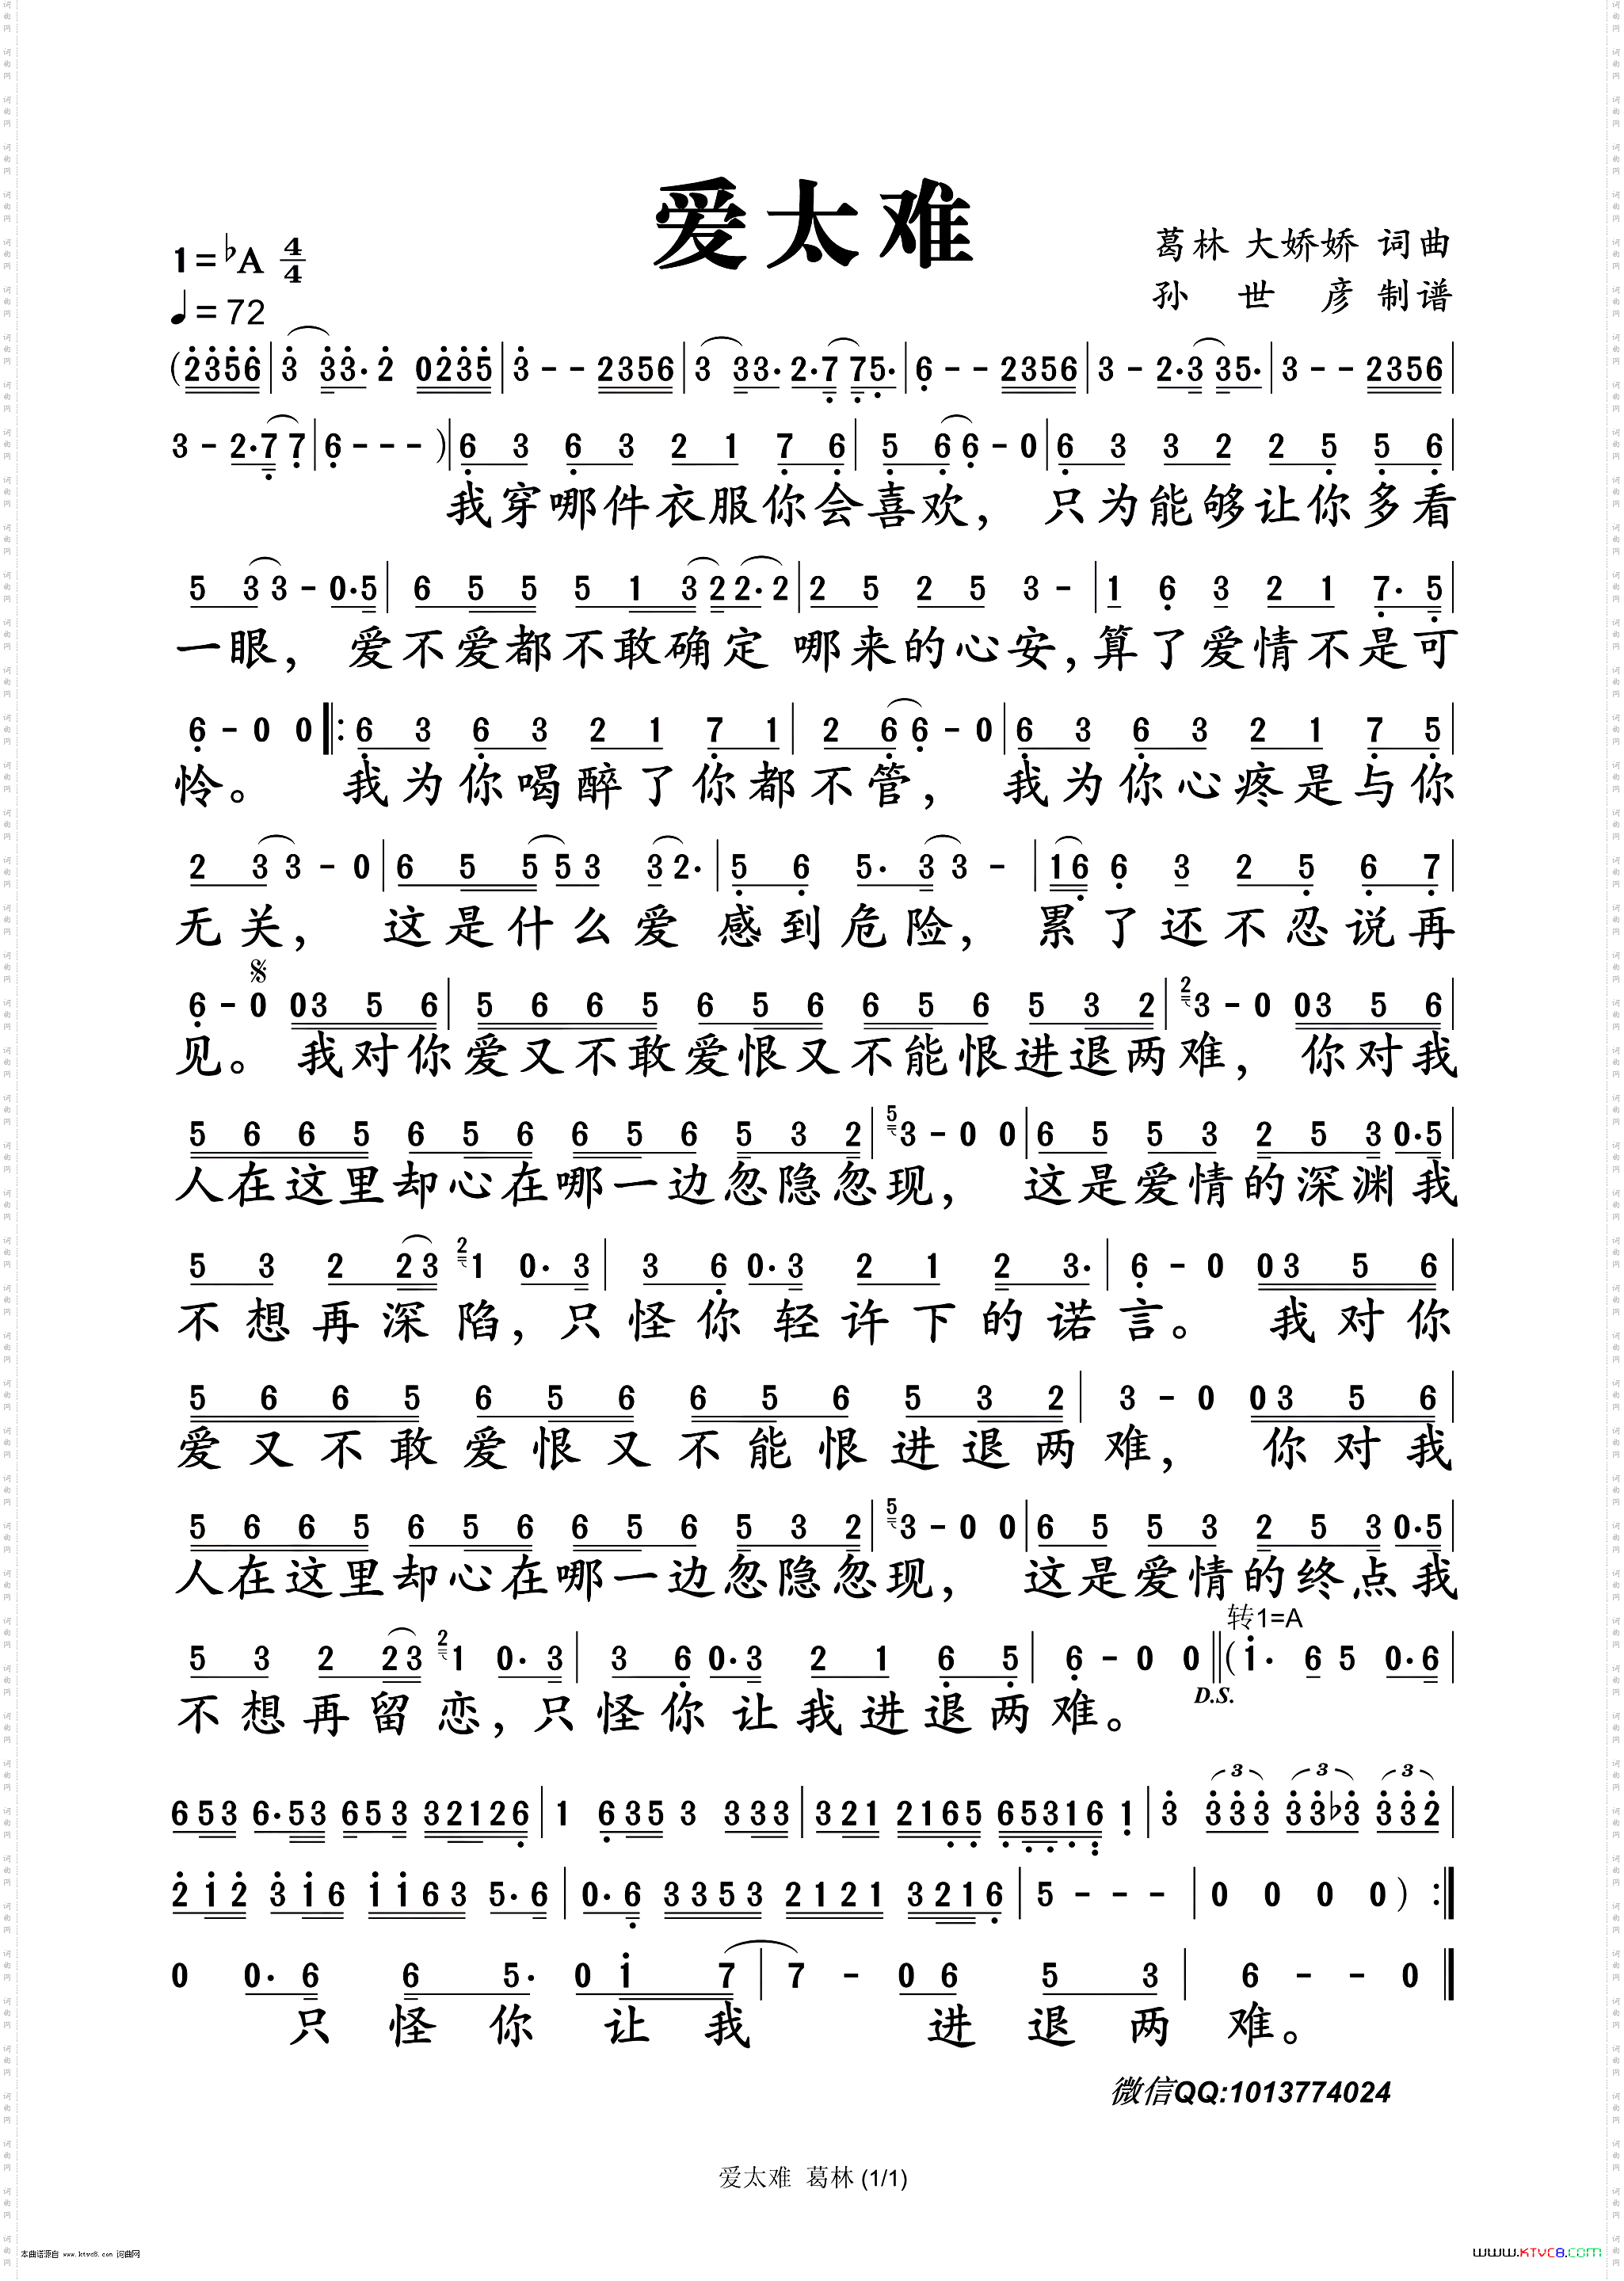 爱太难
1=♭A 4/4
葛林 大娇娇 词曲
♩=72
孙 世 彦 制谱
(2356|3 33·2 0235|3--2356|3 33·2·7 75·|6--2356|3-2·3 35·|3--2356|
3-2·7 7|6---)|6 3 6 3 2 1 7 6|5 6 6-0|6 3 3 2 2 5 5 6|
我穿哪件衣服你会喜欢, 只为能够让你多看
5 3 3-0·5|6 5 5 5 1 3 2 2·2|2 5 2 5 3-|1 6 3 2 1 7· 5|
一眼, 爱不爱都不敢确定 哪来的心安,算了爱情不是可
6-0 0‖:6 3 6 3 2 1 7 1|2 6 6-0|6 3 6 3 2 1 7 5|
怜。 我为你喝醉了你都不管, 我为你心疼是与你
2 3 3-0|6 5 5 5 3 3 2·|5 6 5· 3 3-|1 6 6 3 2 5 6 7|
无关, 这是什么爱 感到危险, 累了还不忍说再
𝄋
6-0 03 5 6|5 6 6 5 6 5 6 6 5 6 5 3 2|2 3-0 03 5 6|
见。 我对你爱又不敢爱恨又不能恨进退两难, 你对我
5 6 6 5 6 5 6 6 5 6 5 3 2|5 3-0 0|6 5 5 3 2 5 3 0·5|
人在这里却心在哪一边忽隐忽现, 这是爱情的深渊我
5 3 2 2 3 2 1 0· 3|3 6 0·3 2 1 2 3·|6-0 03 5 6|
不想再深陷,只怪你轻许下的诺言。 我对你
5 6 6 5 6 5 6 6 5 6 5 3 2|3-0 03 5 6|
爱又不敢爱恨又不能恨进退两难, 你对我
5 6 6 5 6 5 6 6 5 6 5 3 2|5 3-0 0|6 5 5 3 2 5 3 0·5|
人在这里却心在哪一边忽隐忽现, 这是爱情的终点我
转1=A
5 3 2 2 3 2 1 0· 3|3 6 0·3 2 1 6 5|6-0 0‖(1· 6 5 0·6|
D.S.
不想再留恋,只怪你让我进退两难。
3 3 3
653 6·53 653 32126|1 635 3 333|321 2165 65316 1|3 333 33♭3 332|
212 316 1163 5·6|0·6 3353 2121 3216|5---|0 0 0 0):‖
0 0·6 6 5· 0 1 7|7-0 6 5 3|6--0‖
只怪你让我 进退两难。
微信QQ:1013774024
爱太难 葛林 (1/1)
本曲谱源自 www.ktvc8.com 词曲网
www.KTVC8.com